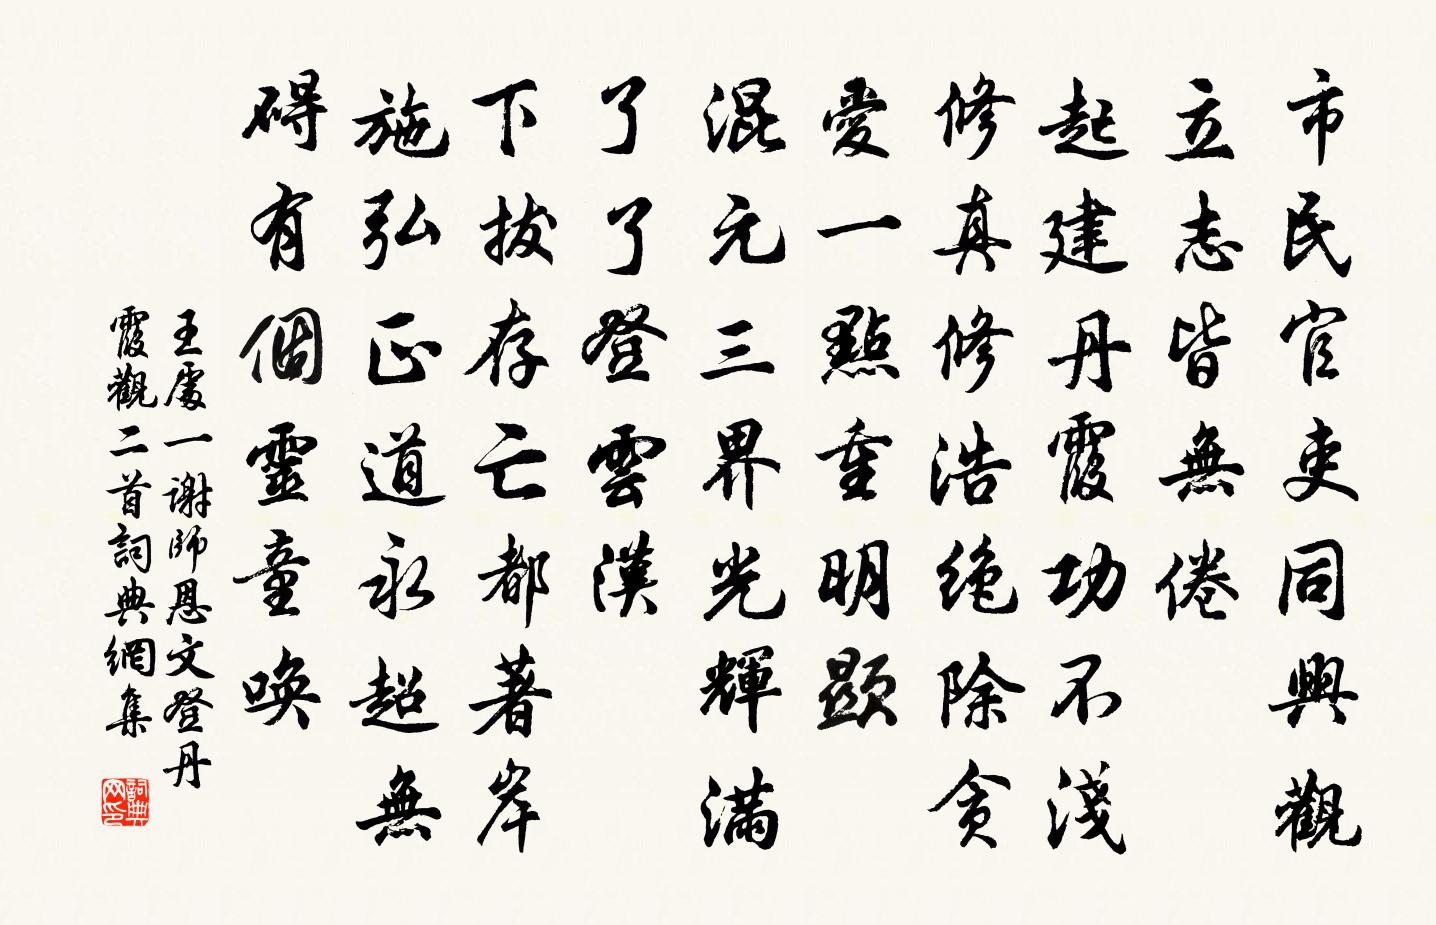 市民官吏同興觀
立志皆無倦
起建丹霞功不淺
修真修浩絶除貪
愛一點重明顯
混元三界光輝滿
了了登雲漢
下拔存亡都著岸
施弘正道永超無
碍有個靈童唤
王處一謝師恩文登丹
霞觀二首詞典網集
詞典
网印